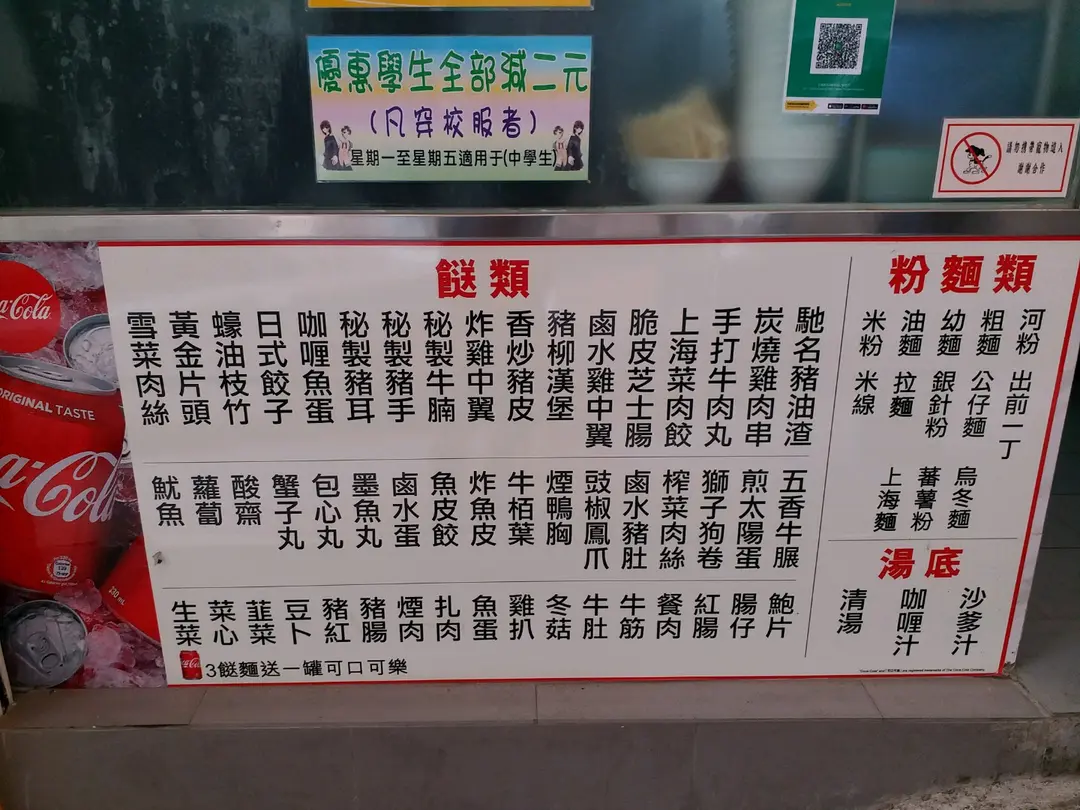 優惠學生全部減二元
(凡穿校服者)
星期一至星期五適用于(中學生)
請勿攜帶寵物進入
謝謝合作
餸類
馳名豬油渣
炭燒雞肉串
手打牛肉丸
上海菜肉餃
脆皮芝士腸
鹵水雞中翼
豬柳漢堡
香炒豬皮
炸雞中翼
秘製牛腩
秘製豬手
秘製豬耳
咖喱魚蛋
日式餃子
蠔油枝竹
黃金片頭
雪菜肉絲
五香牛𦟌
煎太陽蛋
獅子狗卷
榨菜肉絲
鹵水豬肚
豉椒鳳爪
煙鴨胸
牛栢葉
炸魚皮
魚皮餃
鹵水蛋
墨魚丸
包心丸
蟹子丸
酸齋
蘿蔔
魷魚
鮑片
腸仔
紅腸
餐肉
牛筋
牛肚
冬菇
雞扒
魚蛋
扎肉
煙肉
豬腸
豬紅
豆卜
韮菜
菜心
生菜
3餸麵送一罐可口可樂
粉麵類
河粉
粗麵
幼麵
油麵
米粉
出前一丁
公仔麵
銀針粉
拉麵
米線
烏冬麵
蕃薯粉
上海麵
湯底
沙爹汁
咖喱汁
清湯
a-Cola
ORIGINAL TASTE
a-Col